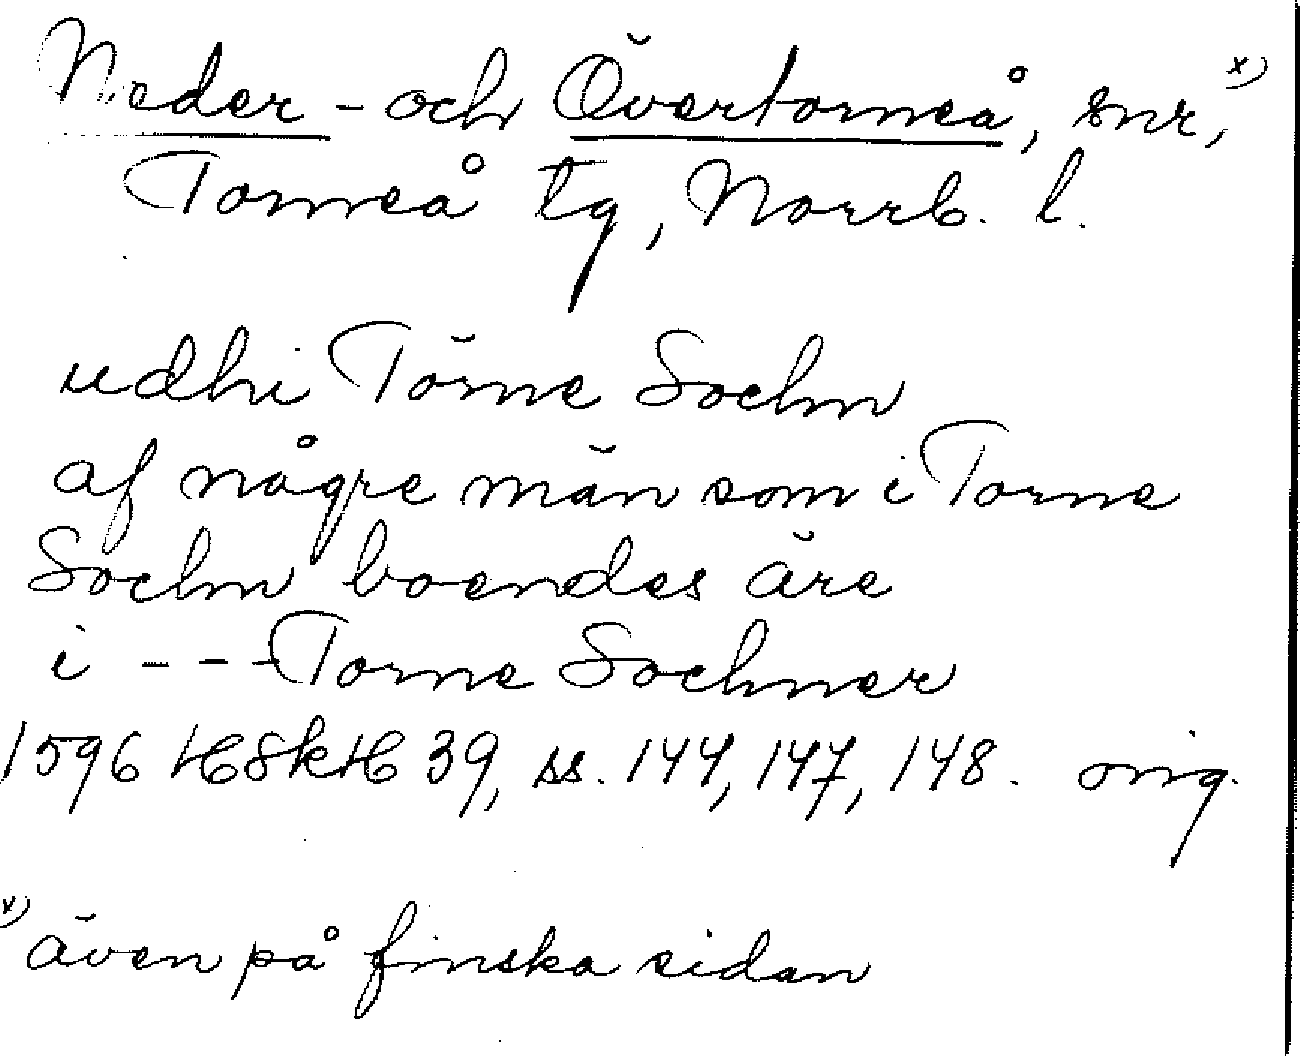 Neder- och Övertorneå, snr, x)
Torneå tg, Norrb. l.
udhi Törne Sochn
af någre män som i Torne
Sochn boendes äre
i --- Torne Sochner
1596 HSkH 39, ss. 144, 147, 148. orig.
x) även på finska sidan